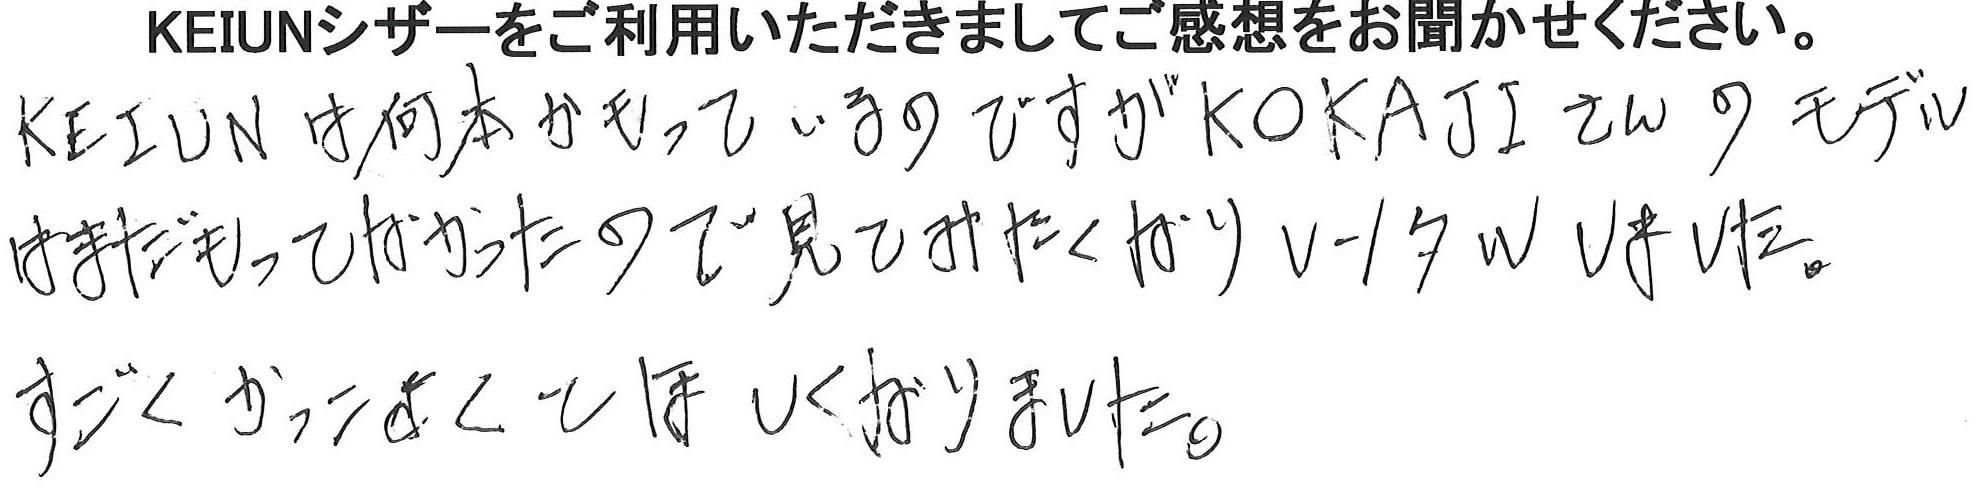 KEIUNシザーをご利用いただきましてご感想をお聞かせください。
KEIUNは何本かもっているのですがKOKAJIさんのモデル
はまだもってなかったので見てみたくなりレンタルしました。
すごくかっこよくてほしくなりました。